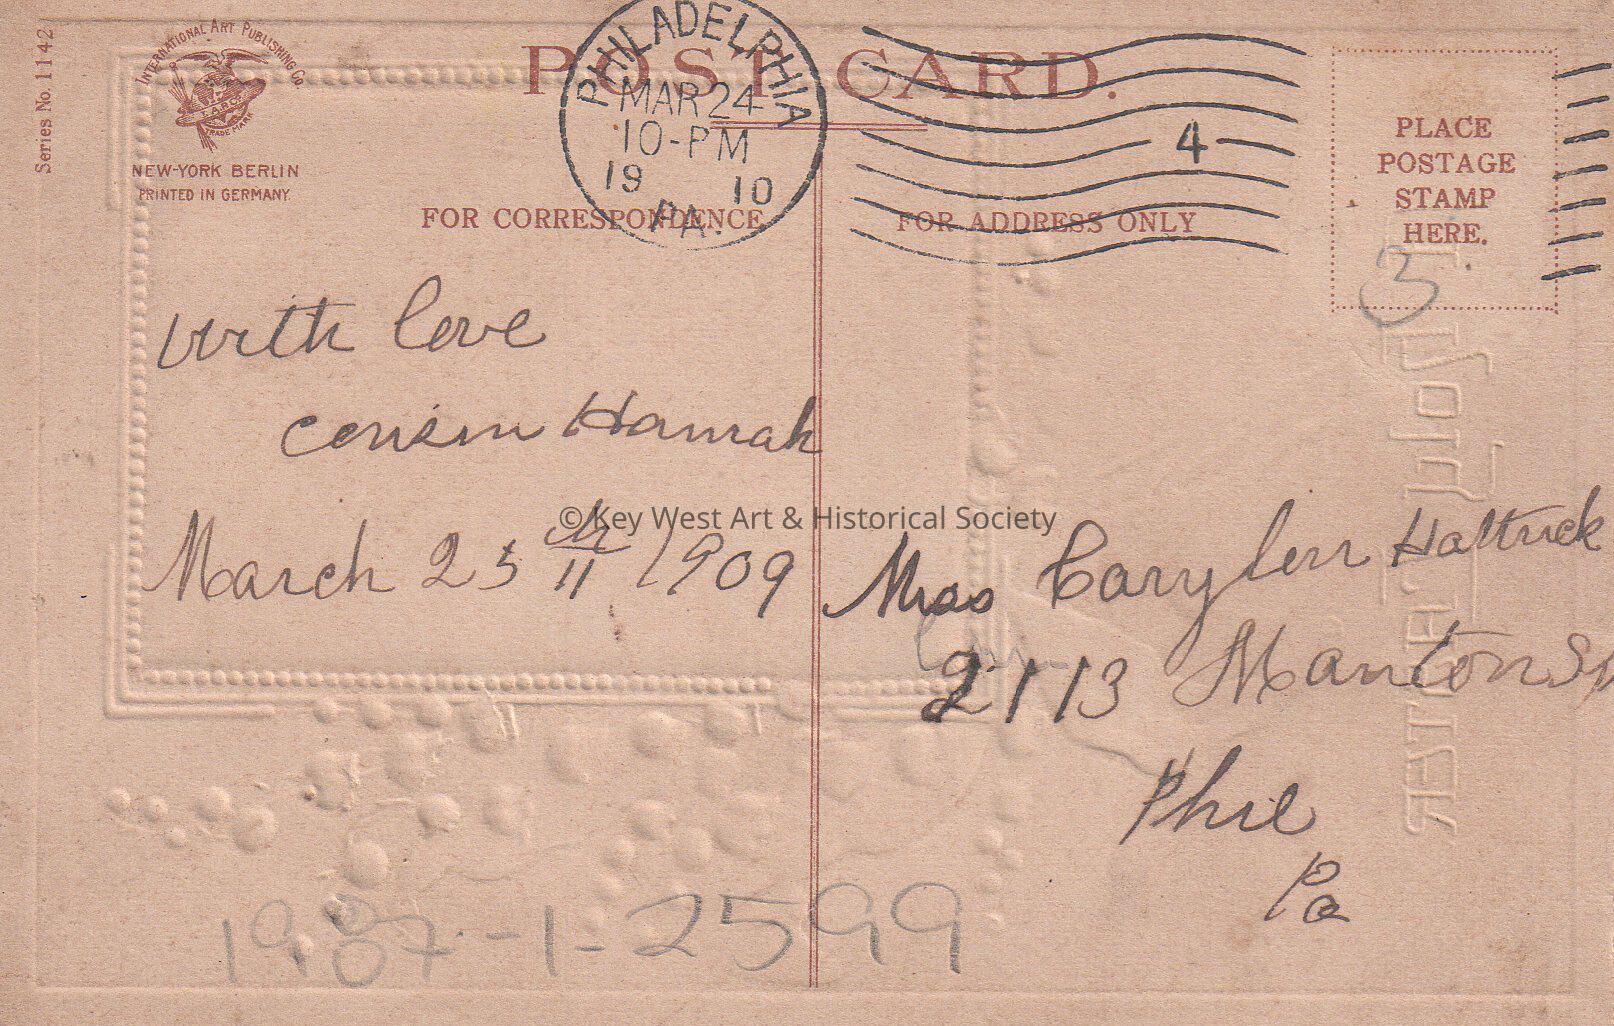 Series No. 1142
INTERNATIONAL ART PUBLISHING Co.
TRADE MARK
NEW-YORK BERLIN
PRINTED IN GERMANY.
POST CARD.
PHILADELPHIA
MAR 24
10-PM
19 10
PA.
4
FOR CORRESPONDENCE
FOR ADDRESS ONLY
PLACE
POSTAGE
STAMP
HERE.
3
With love
cousin Hannah
March 25 1909
© Key West Art & Historical Society
Miss
2113 Manton St
Phil
Pa
1987-1-2599